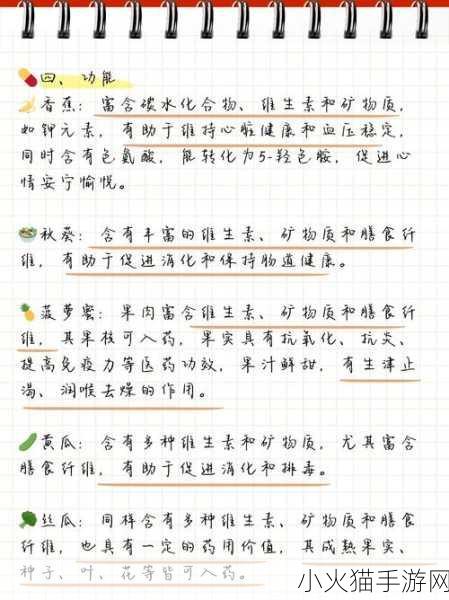 四、功能
香蕉：富含碳水化合物、维生素和矿物质，
如钾元素，有助于维持心脏健康和血压稳定，
同时含有色氨酸，能转化为5-羟色胺，促进心
情安宁愉悦。
秋葵：含有丰富的维生素、矿物质和膳食纤
维，有助于促进消化和保持肠道健康。
菠萝蜜：果肉富含维生素、矿物质和膳食纤
维，其果核可入药，果实具有抗氧化、抗炎、
提高免疫力等医药功效，果汁鲜甜，有生津止
渴、润喉去燥的作用。
黄瓜：含有多种维生素和矿物质，尤其富含
膳食纤维，有助于促进消化和排毒。
丝瓜：同样含有多种维生素、矿物质和膳食
纤维，也具有一定的药用价值，其成熟果实、
种子、叶、花等皆可入药。
小火猫手游网